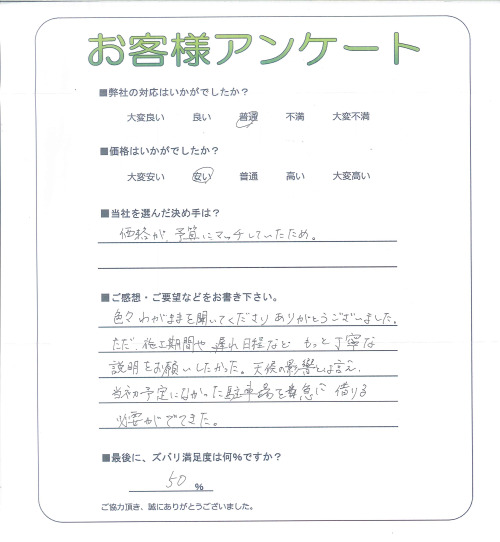 お客様アンケート
■弊社の対応はいかがでしたか？
大変良い 良い 普通 不満 大変不満
■価格はいかがでしたか？
大変安い 安い 普通 高い 大変高い
■当社を選んだ決め手は？
価格が、予算にマッチしていたため。
■ご感想・ご要望などをお書き下さい。
色々わがままを聞いてくださりありがとうございました。
ただ、施工期間や遅れ日程など もっと丁寧な
説明をお願いしたかった。天候の影響とは言え、
当初予定になかった駐車場を緊急に借りる
必要がでてきた。
■最後に、ズバリ満足度は何%ですか？
50 %
ご協力頂き、誠にありがとうございました。